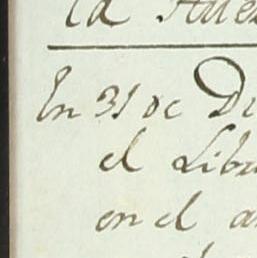 la
En 31 de Di
el Libr
en el a